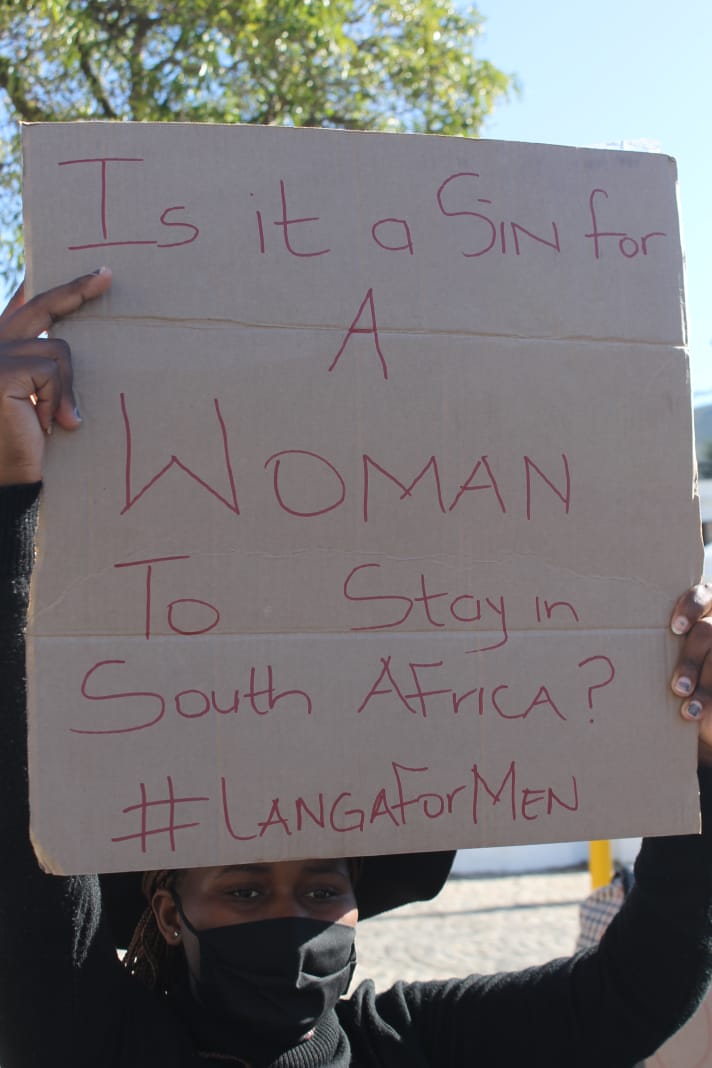 Is it a SIN for
A
WOMAN
To Stay in
South AFrICA?
#LANGAForMEN